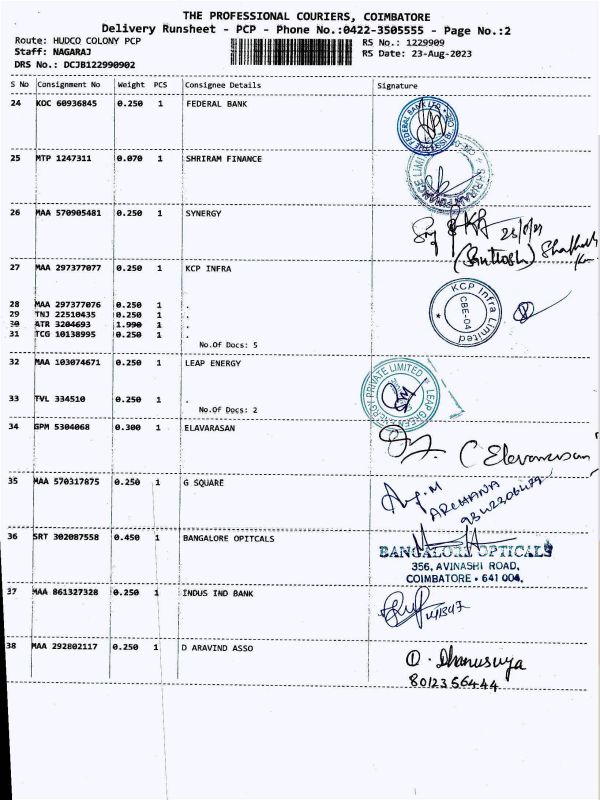 THE PROFESSIONAL COURIERS, COIMBATORE
Delivery Runsheet - PCP - Phone No.:0422-3505555 - Page No.:2
Route: HUDCO COLONY PCP RS No.: 1229909
Staff: NAGARAJ RS Date: 23-Aug-2023
DRS No.: DCJB122990902
S No Consignment No Weight PCS Consignee Details Signature
24 KOC 60936845 0.250 1 FEDERAL BANK
25 MTP 1247311 0.070 1 SHRIRAM FINANCE
26 MAA 570905481 0.250 1 SYNERGY
(Santhosh)
27 MAA 297377077 0.250 1 KCP INFRA
KCP Infra Limited
CBE-04
28 MAA 297377076 0.250 1 .
29 TNJ 22510435 0.250 1 .
30 ATR 3204693 1.990 1 .
31 TCG 10138995 0.250 1 .
No.Of Docs: 5
32 MAA 103074671 0.250 1 LEAP ENERGY
LEAP GREEN ENERGY PRIVATE LIMITED
33 TVL 334510 0.250 1 .
No.Of Docs: 2
34 GPM 5304068 0.300 1 ELAVARASAN
C Elavarasan
35 MAA 570317875 0.250 1 G SQUARE
ARCHANA
36 SRT 302087558 0.450 1 BANGALORE OPITCALS
BANGALORE OPTICALS
356, AVINASHI ROAD,
COIMBATORE - 641 004.
37 MAA 861327328 0.250 1 INDUS IND BANK
38 MAA 292802117 0.250 1 D ARAVIND ASSO
D. Dhanusuya
8012356444